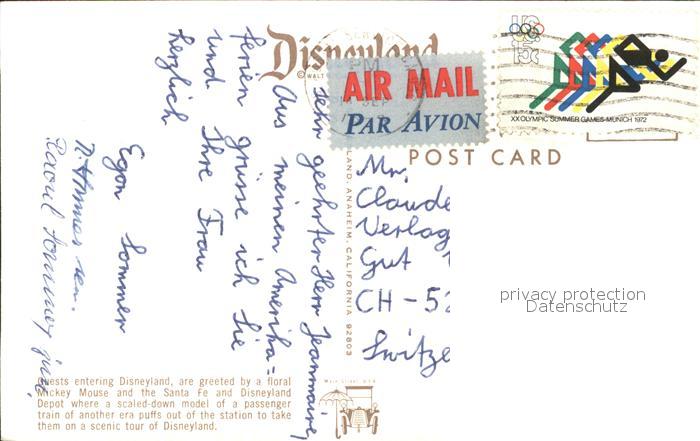 Disneyland
© WALT
PM
SEP
AIR MAIL
PAR AVION
US
15c
XX OLYMPIC SUMMER GAMES · MUNICH 1972
POST CARD
LAND, ANAHEIM, CALIFORNIA 92803
Sehr geehrter Herr Jeanmaire,
Aus meinen Amerika=
ferien grüsse ich Sie
und Ihre Frau
herzlich
Egon Sommer
sen.
Raoul Sommer jun.
Mr.
Claude
Verlag
Gut
CH - 52
Switze
privacy protection
Datenschutz
Guests entering Disneyland, are greeted by a floral
Mickey Mouse and the Santa Fe and Disneyland
Depot where a scaled-down model of a passenger
train of another era puffs out of the station to take
them on a scenic tour of Disneyland.
Main Street, USA